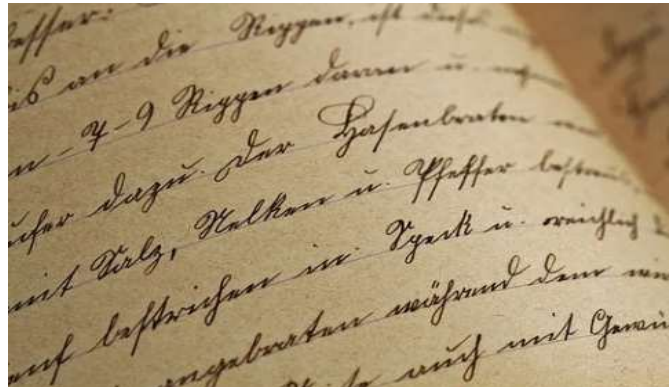 esser.
is an die Rippen, ist dieses
n - 7 - 9 Rippen daran u.
ufer dazu. Der Hasenbraten
mit Salz, Nelken u. Pfeffer bestreu
enf bestrichen in Speck u. reichlich
angebraten während dem
auch mit Gewü